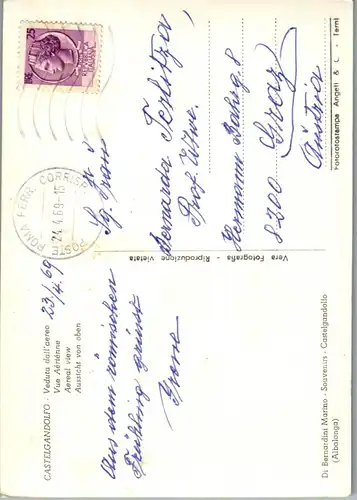 CASTELGANDOLFO - Veduta dall'aereo
Vue Aérienne
Aereal view
Aussicht von oben
23/4.69
Aus dem römischen
Frühling grüsst
Di Bernardini Marino - Souvenirs - Castelgandolfo
(Albalonga)
Vera Fotografia - Riproduzione vietata
25
ROMA FERR. CORRISP.
24.4.69-15
Bernarda
Prof. Wwe.
Hermann Bahrg. 8
8200 Graz
Austria
Fotorotostampa Angeli & C. - Terni